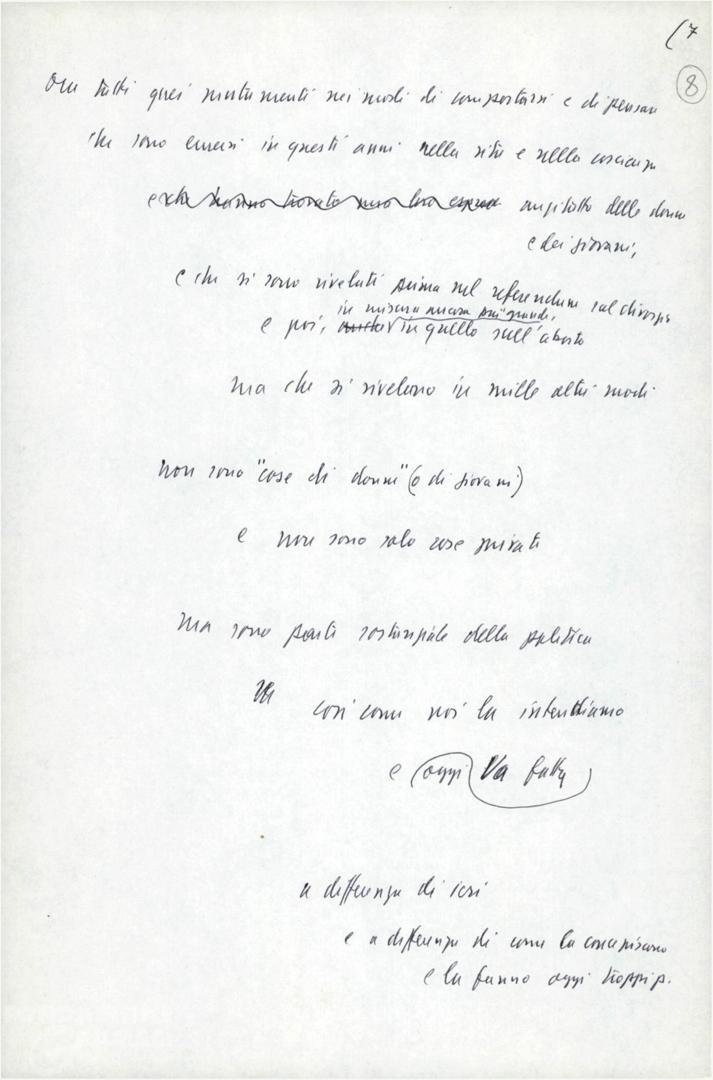 (7
8
Ora tutti quei mutamenti nei modi di comportarsi e di pensare
che sono emersi in questi anni nella vita e nella coscienza
e che hanno trovato una loro espres anzitutto delle donne
e dei giovani,
e che si sono rivelati prima nel referendum sul divorzio
in misura ancora più grande,
e poi, anche in quello sull'aborto
ma che si rivelano in mille altri modi
non sono "cose di donne" (o di giovani)
e non sono solo cose private
ma sono parte sostanziale della politica
così come noi la intendiamo
e oggi va fatta
a differenza di ieri
e a differenza di come la concepiscono
e la fanno oggi troppi p.